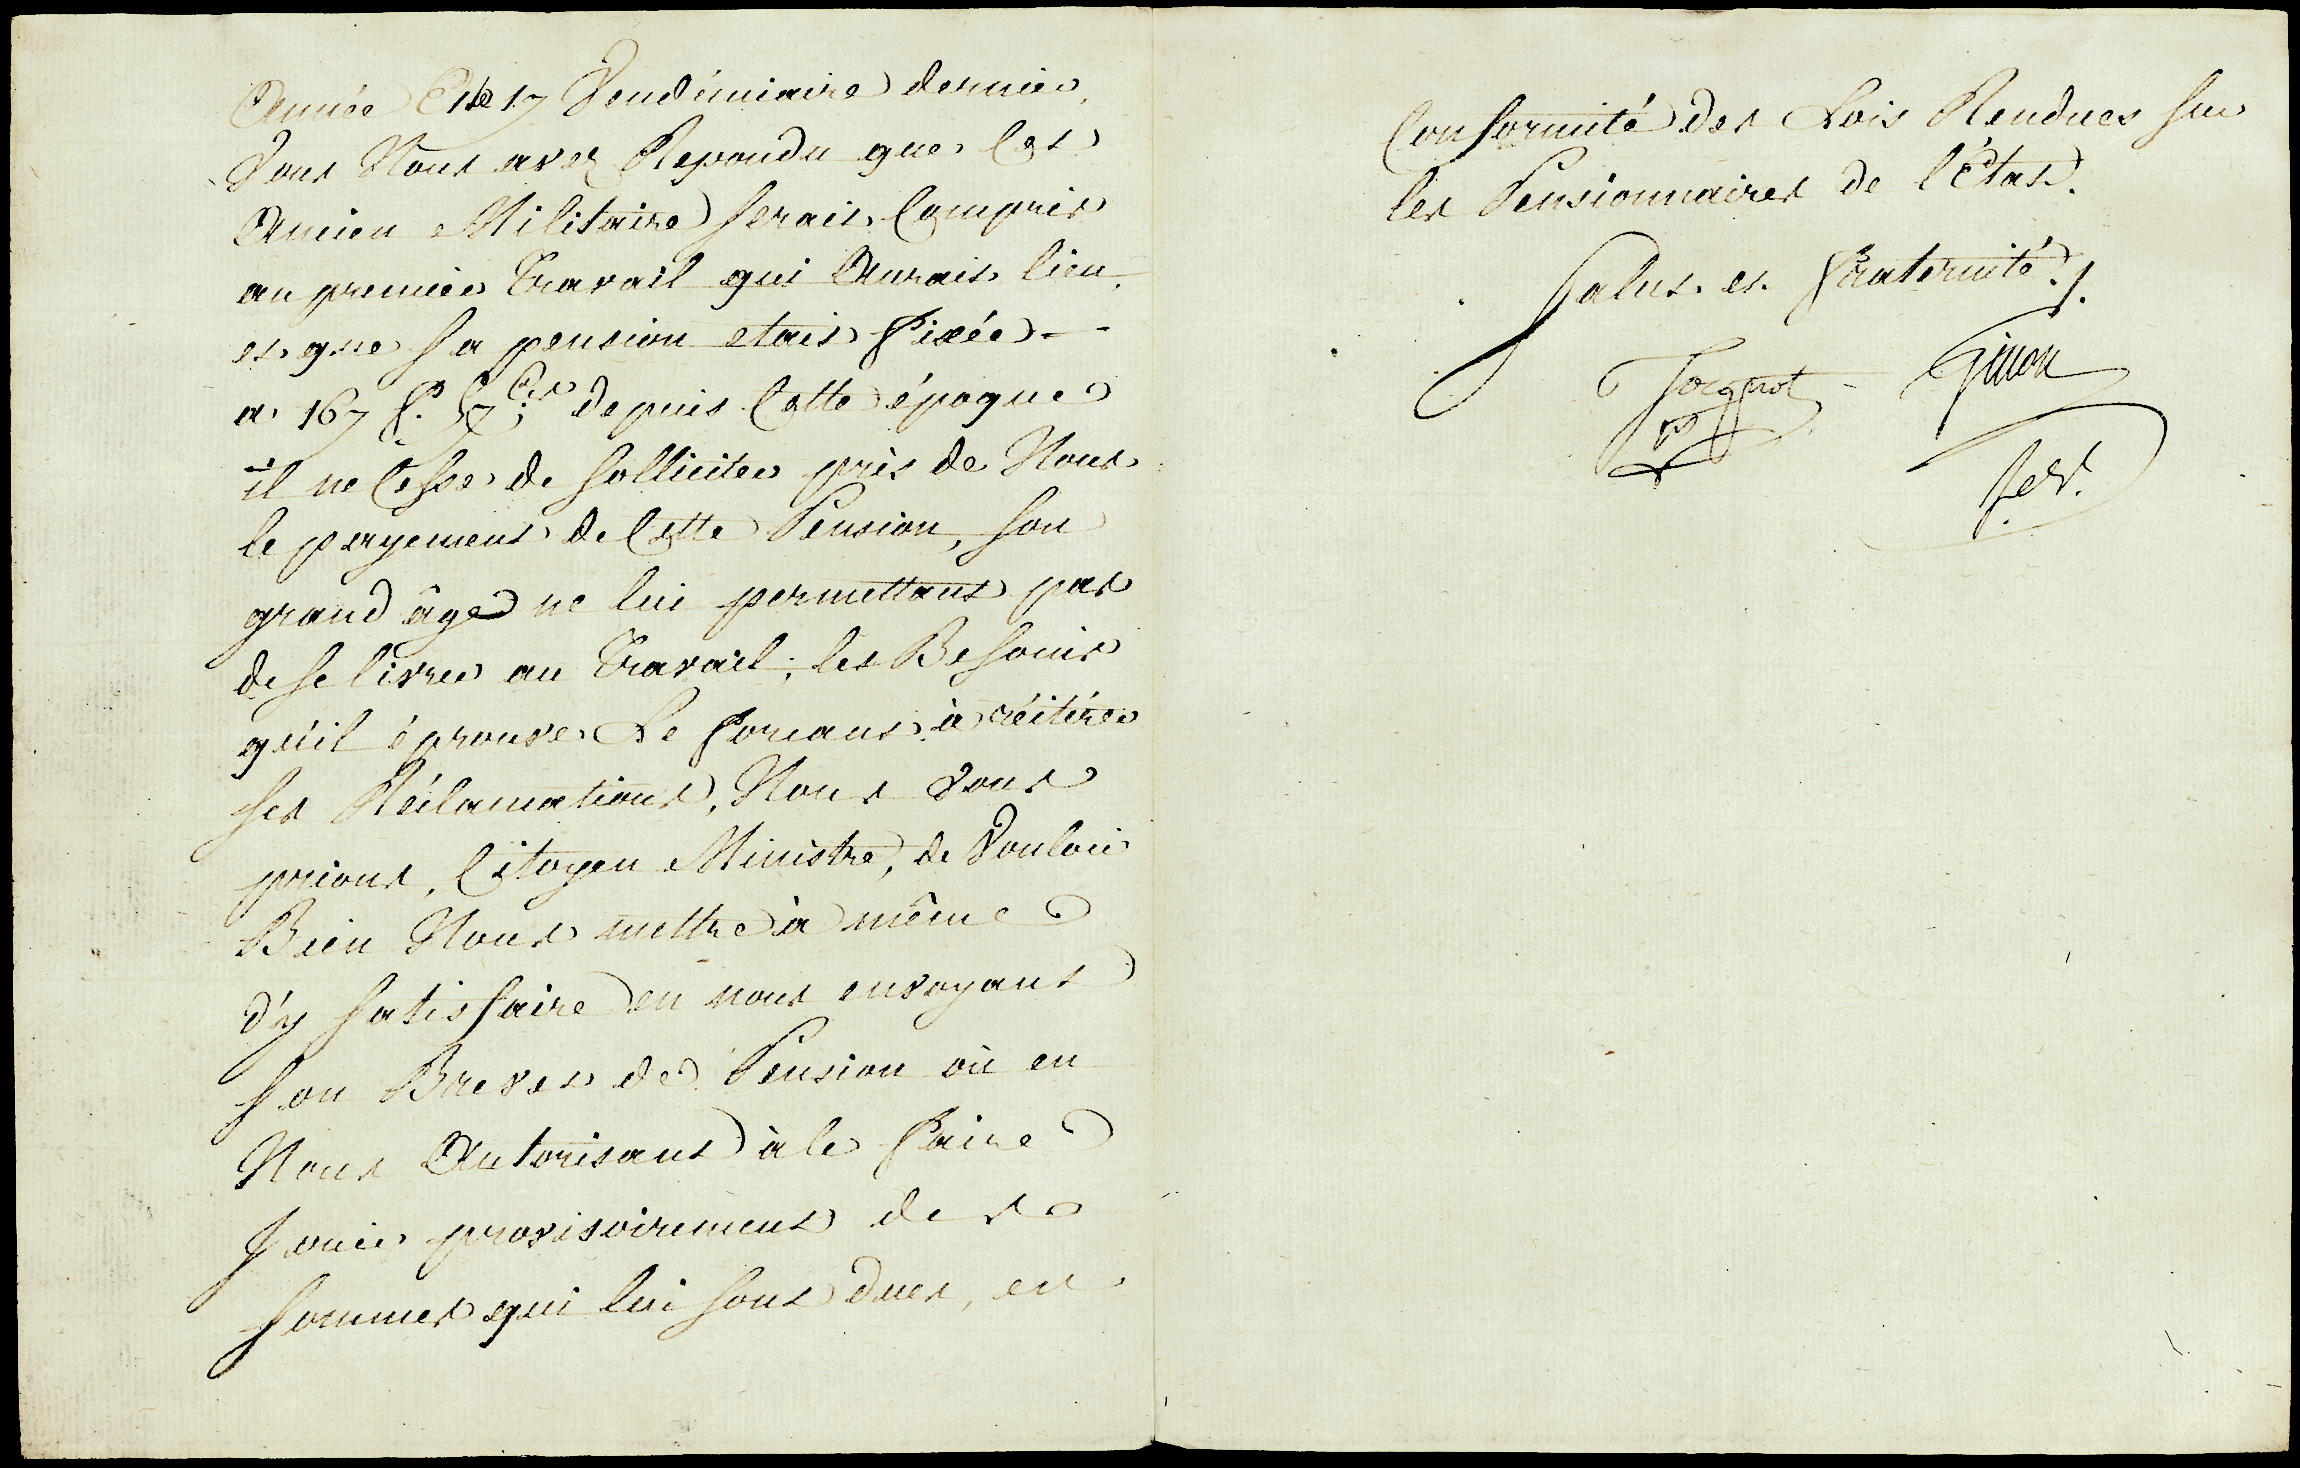 Année Et le 17 Vendémiaire dernier,
Vous Nous avez Repondu que Cet
Ancien Militaire serait Compris
au premier Travail qui Aurait lieu,
et que sa pension etait fixée
a 167 f. 57 Ces depuis Cette époque
il ne Cesse de solliciter près de Nous
le payement de Cette Pension, son
grand âge ne lui permettant pas
de se livrer au Travail, les Besoins
qu'il éprouve Le forcant à réitérer
ses Réclamations, Nous vous
prions, Citoyen Ministre, de Vouloir
Bien Nous mettre à même
d'y satisfaire en nous envoyant
son Brevet de Pension où en
Nous Autorisant à le faire
Jouir provisoirement des
sommes qui lui sont dues, en
Conformité des Lois Rendues sur
les Pensionnaires de l'État.
Salut et fraternité.